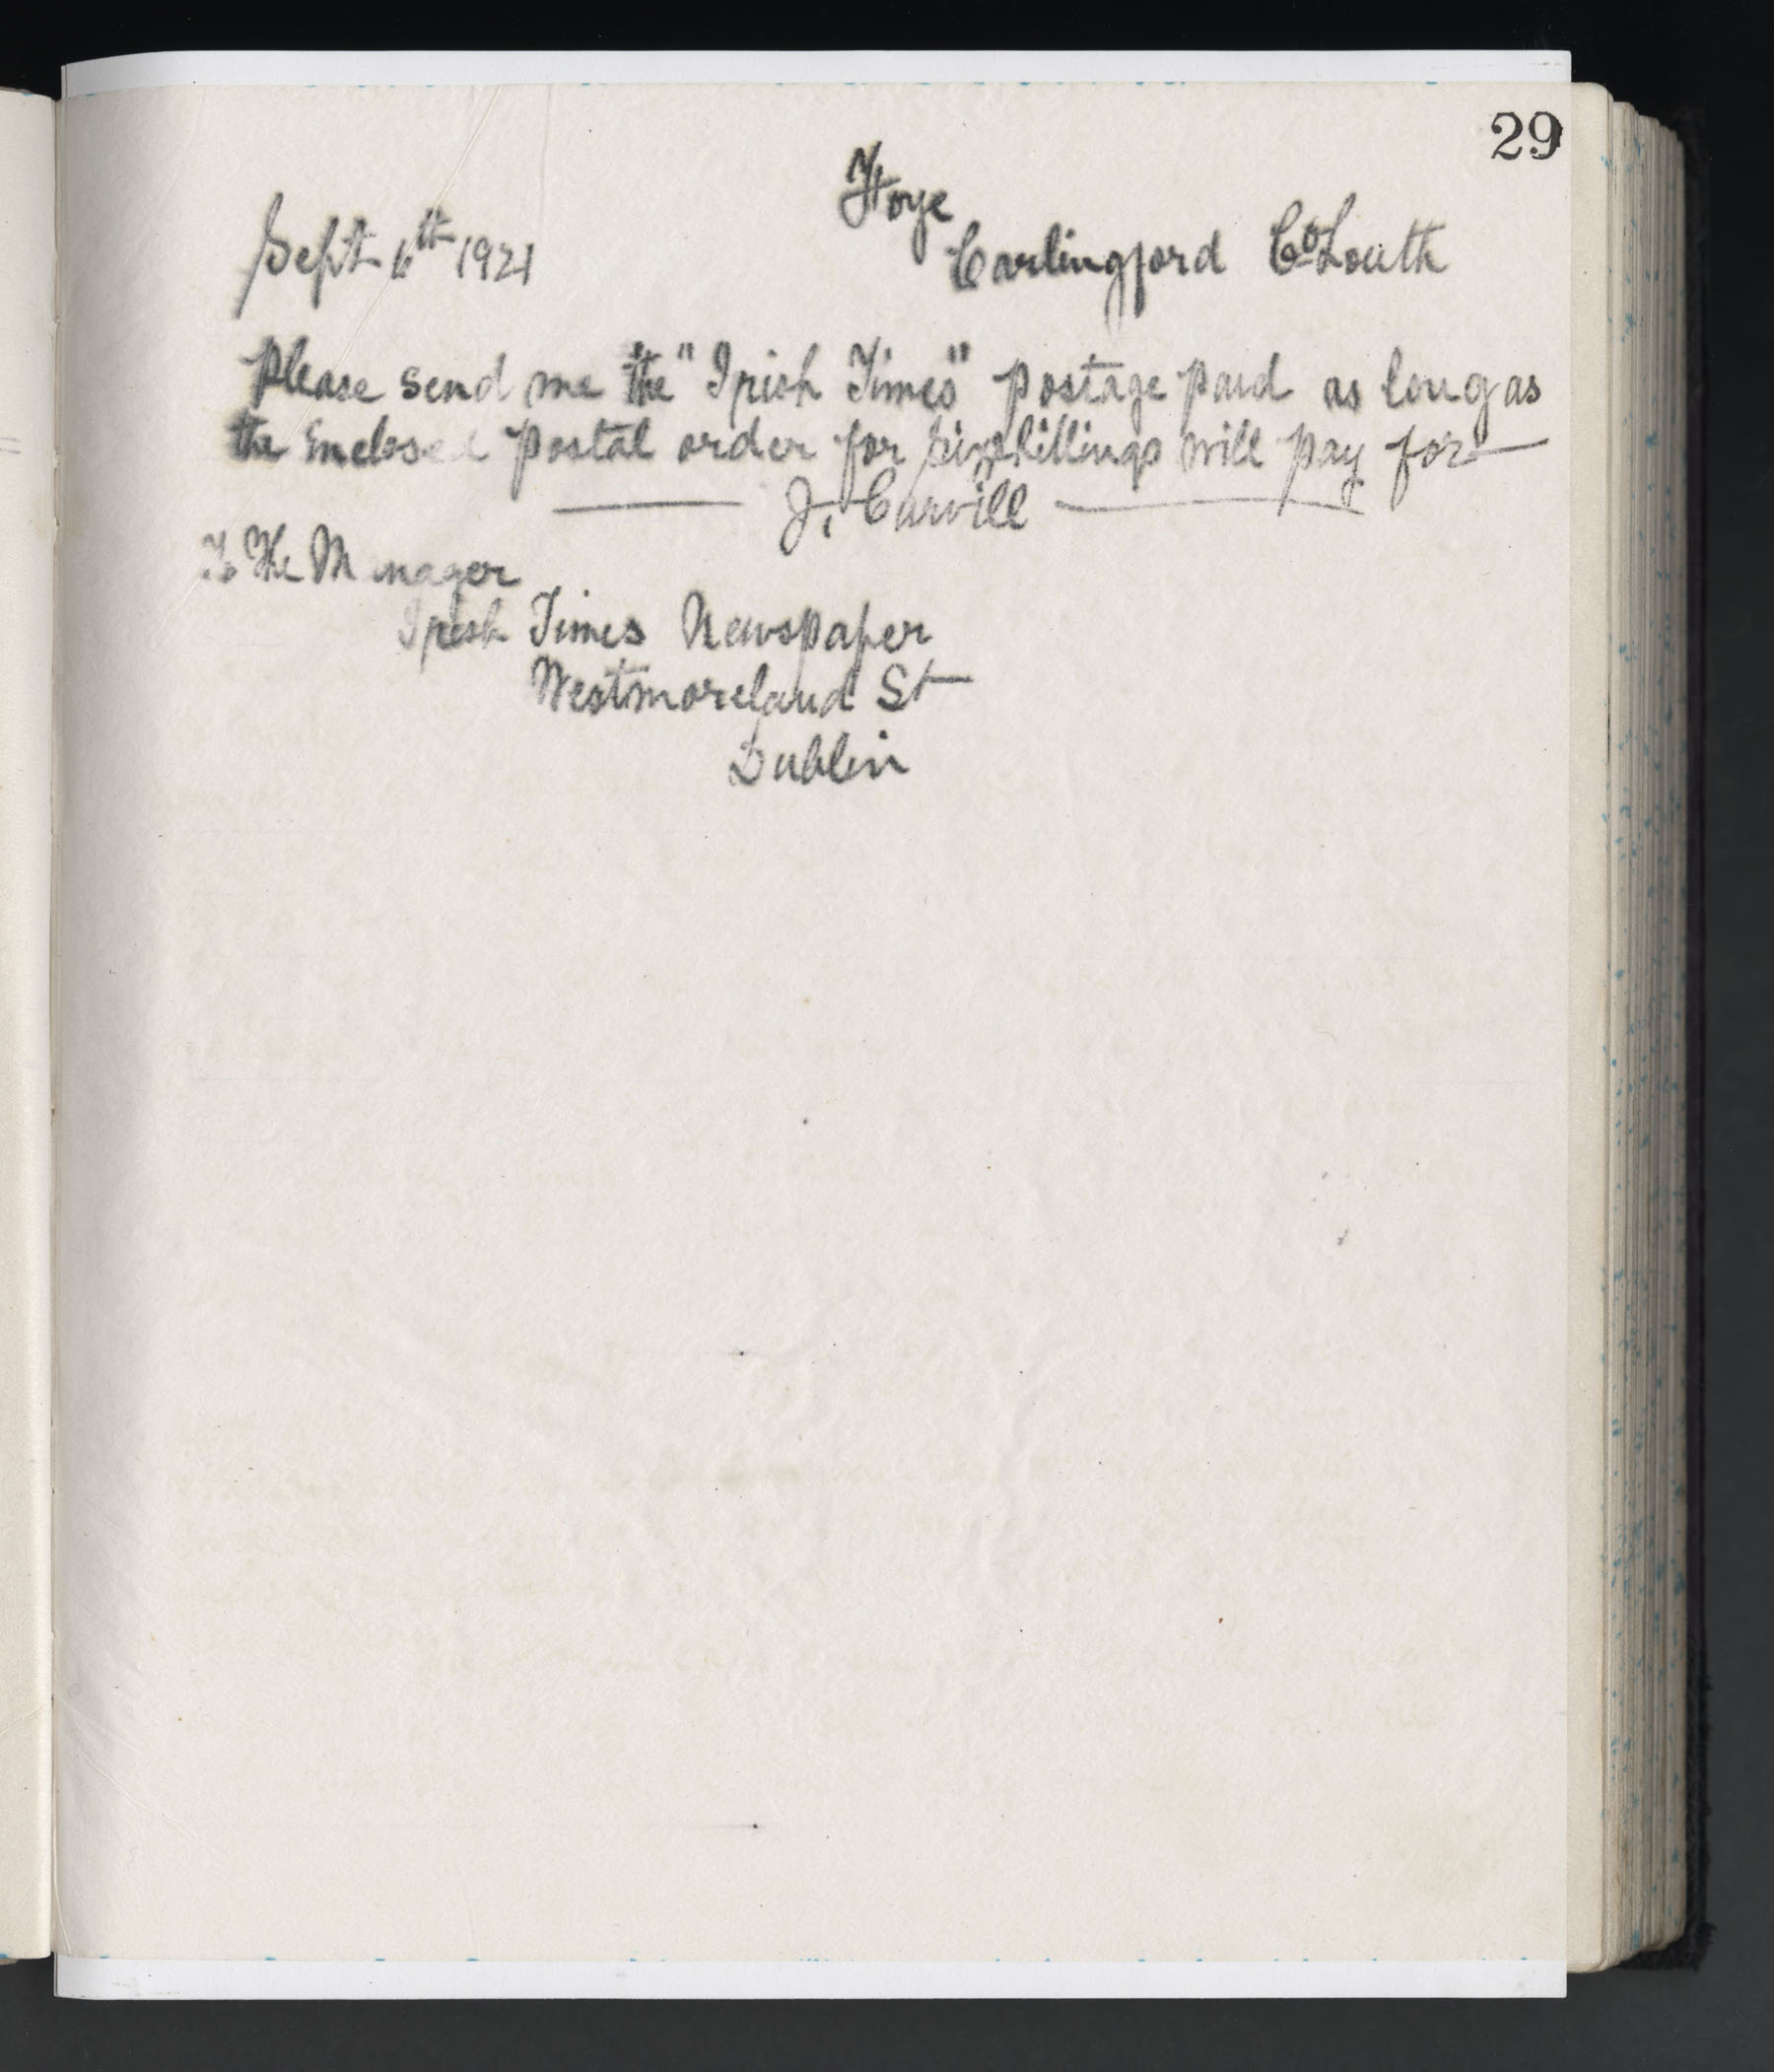 29
Foye
Sept 6th 1921 Carlingford Co Louth
Please send me the "Irish Times" postage paid as long as
the Enclosed postal order for six shillings will pay for
J. Carvill
To The Manager
Irish Times Newspaper
Westmoreland St
Dublin